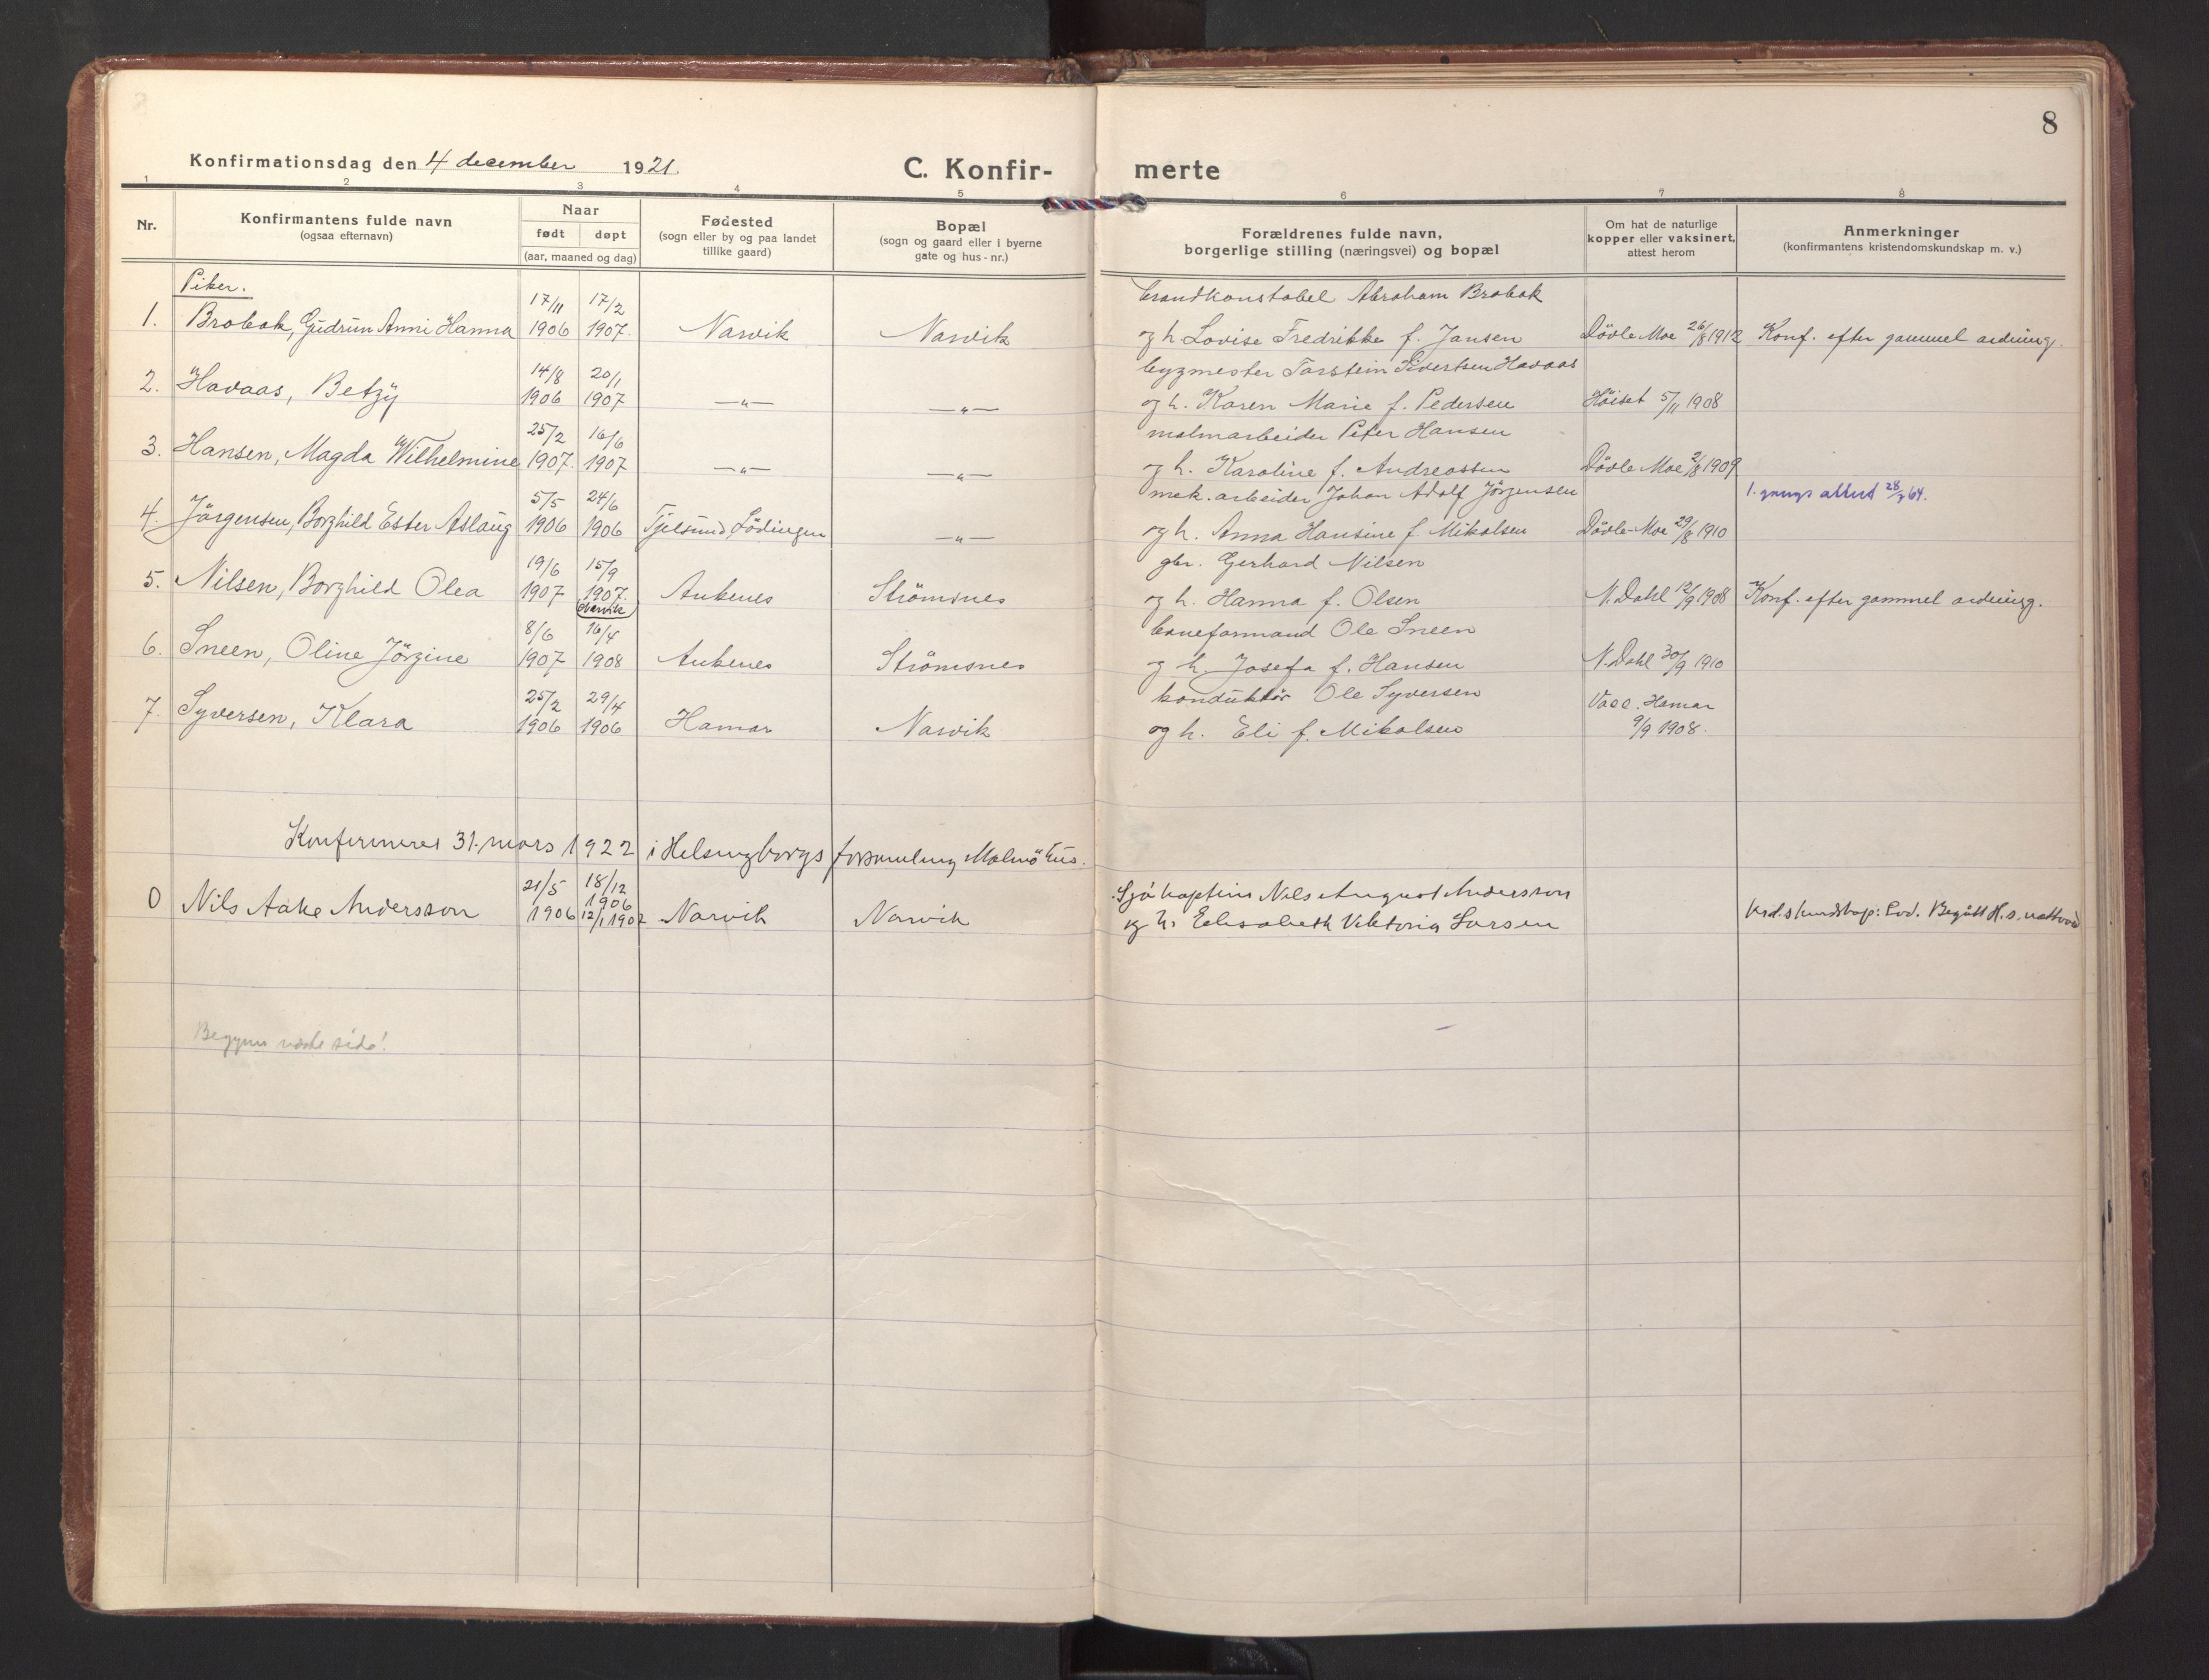 8
Konfirmationsdag den 4 december 1921.
C. Konfir- merte
1 2 3 4 5 6 7 8
Nr.
Konfirmantens fulde navn
(ogsaa efternavn)
Naar
født døpt
(aar, maaned og dag)
Fødested
(sogn eller by og paa landet
tillike gaard)
Bopæl
(sogn og gaard eller i byerne
gate og hus-nr.)
Forældrenes fulde navn,
borgerlige stilling (næringsvei) og bopæl
Om hat de naturlige
kopper eller vaksinert,
attest herom
Anmerkninger
(konfirmantens kristendomskundskap m. v.)
Piker.
17/11 17/2 brandkonstabel Abraham Brobak
1. Brobak, Gudrun Anni Hanna 1906 1907. Narvik Narvik og h. Lovise Fredrikke f. Jansen Dövle Moe 26/8 1912 Konf. efter gammel ordning.
14/8 20/1 bygmester Torstein Sivertsen Havaas
2. Havaas, Betzy 1906 1907 —"— —"— og h. Karen Marie f. Pedersen Höiset 5/11 1908
25/2 16/6 malmarbeider Peter Hansen
3. Hansen, Magda Wilhelmine 1907. 1907 —"— —"— og h. Karoline f. Andreassen Dövle Moe 2/8 1909
5/5 24/6 mek. arbeider Johan Adolf Jörgensen 1. gangs attest 28/ 64.
4. Jörgensen, Borghild Ester Aslaug 1906 1906 Tjelsund, Lödingen —"— og h. Anna Hansine f. Mikalsen Dövle-Moe 29/8 1910
19/6 15/9 gbr. Gerhard Nilsen
5. Nilsen, Borghild Olea 1907 1907. Ankenes Strömsnes og h. Hanna f. Olsen N. Dahl 12/9 1908 Konf. efter gammel ordning.
(Narvik)
8/6 16/4 baneformand Ole Sneen
6. Sneen, Oline Jörgine 1907 1908 Ankenes Strömsnes og h. Josefa f. Hansen N. Dahl 30/9 1910
25/2 29/4 konduktör Ole Syversen Vacc. Hamar
7. Syversen, Klara 1906 1906 Hamar Narvik og h. Eli f. Mikalsen 9/9 1908.
Konfirmeres 31. mars 1922 i Helsingborgs forsamling Malmöhus.
21/5 18/12 1906 Sjökaptein Nils August Andersson
0 Nils Aake Andersson 1906 12/1 1907 Narvik Narvik og h. Elisabeth Viktoria Larsen krd.skundskap: God. Begått H. s. nattvard
Begynn næste side!